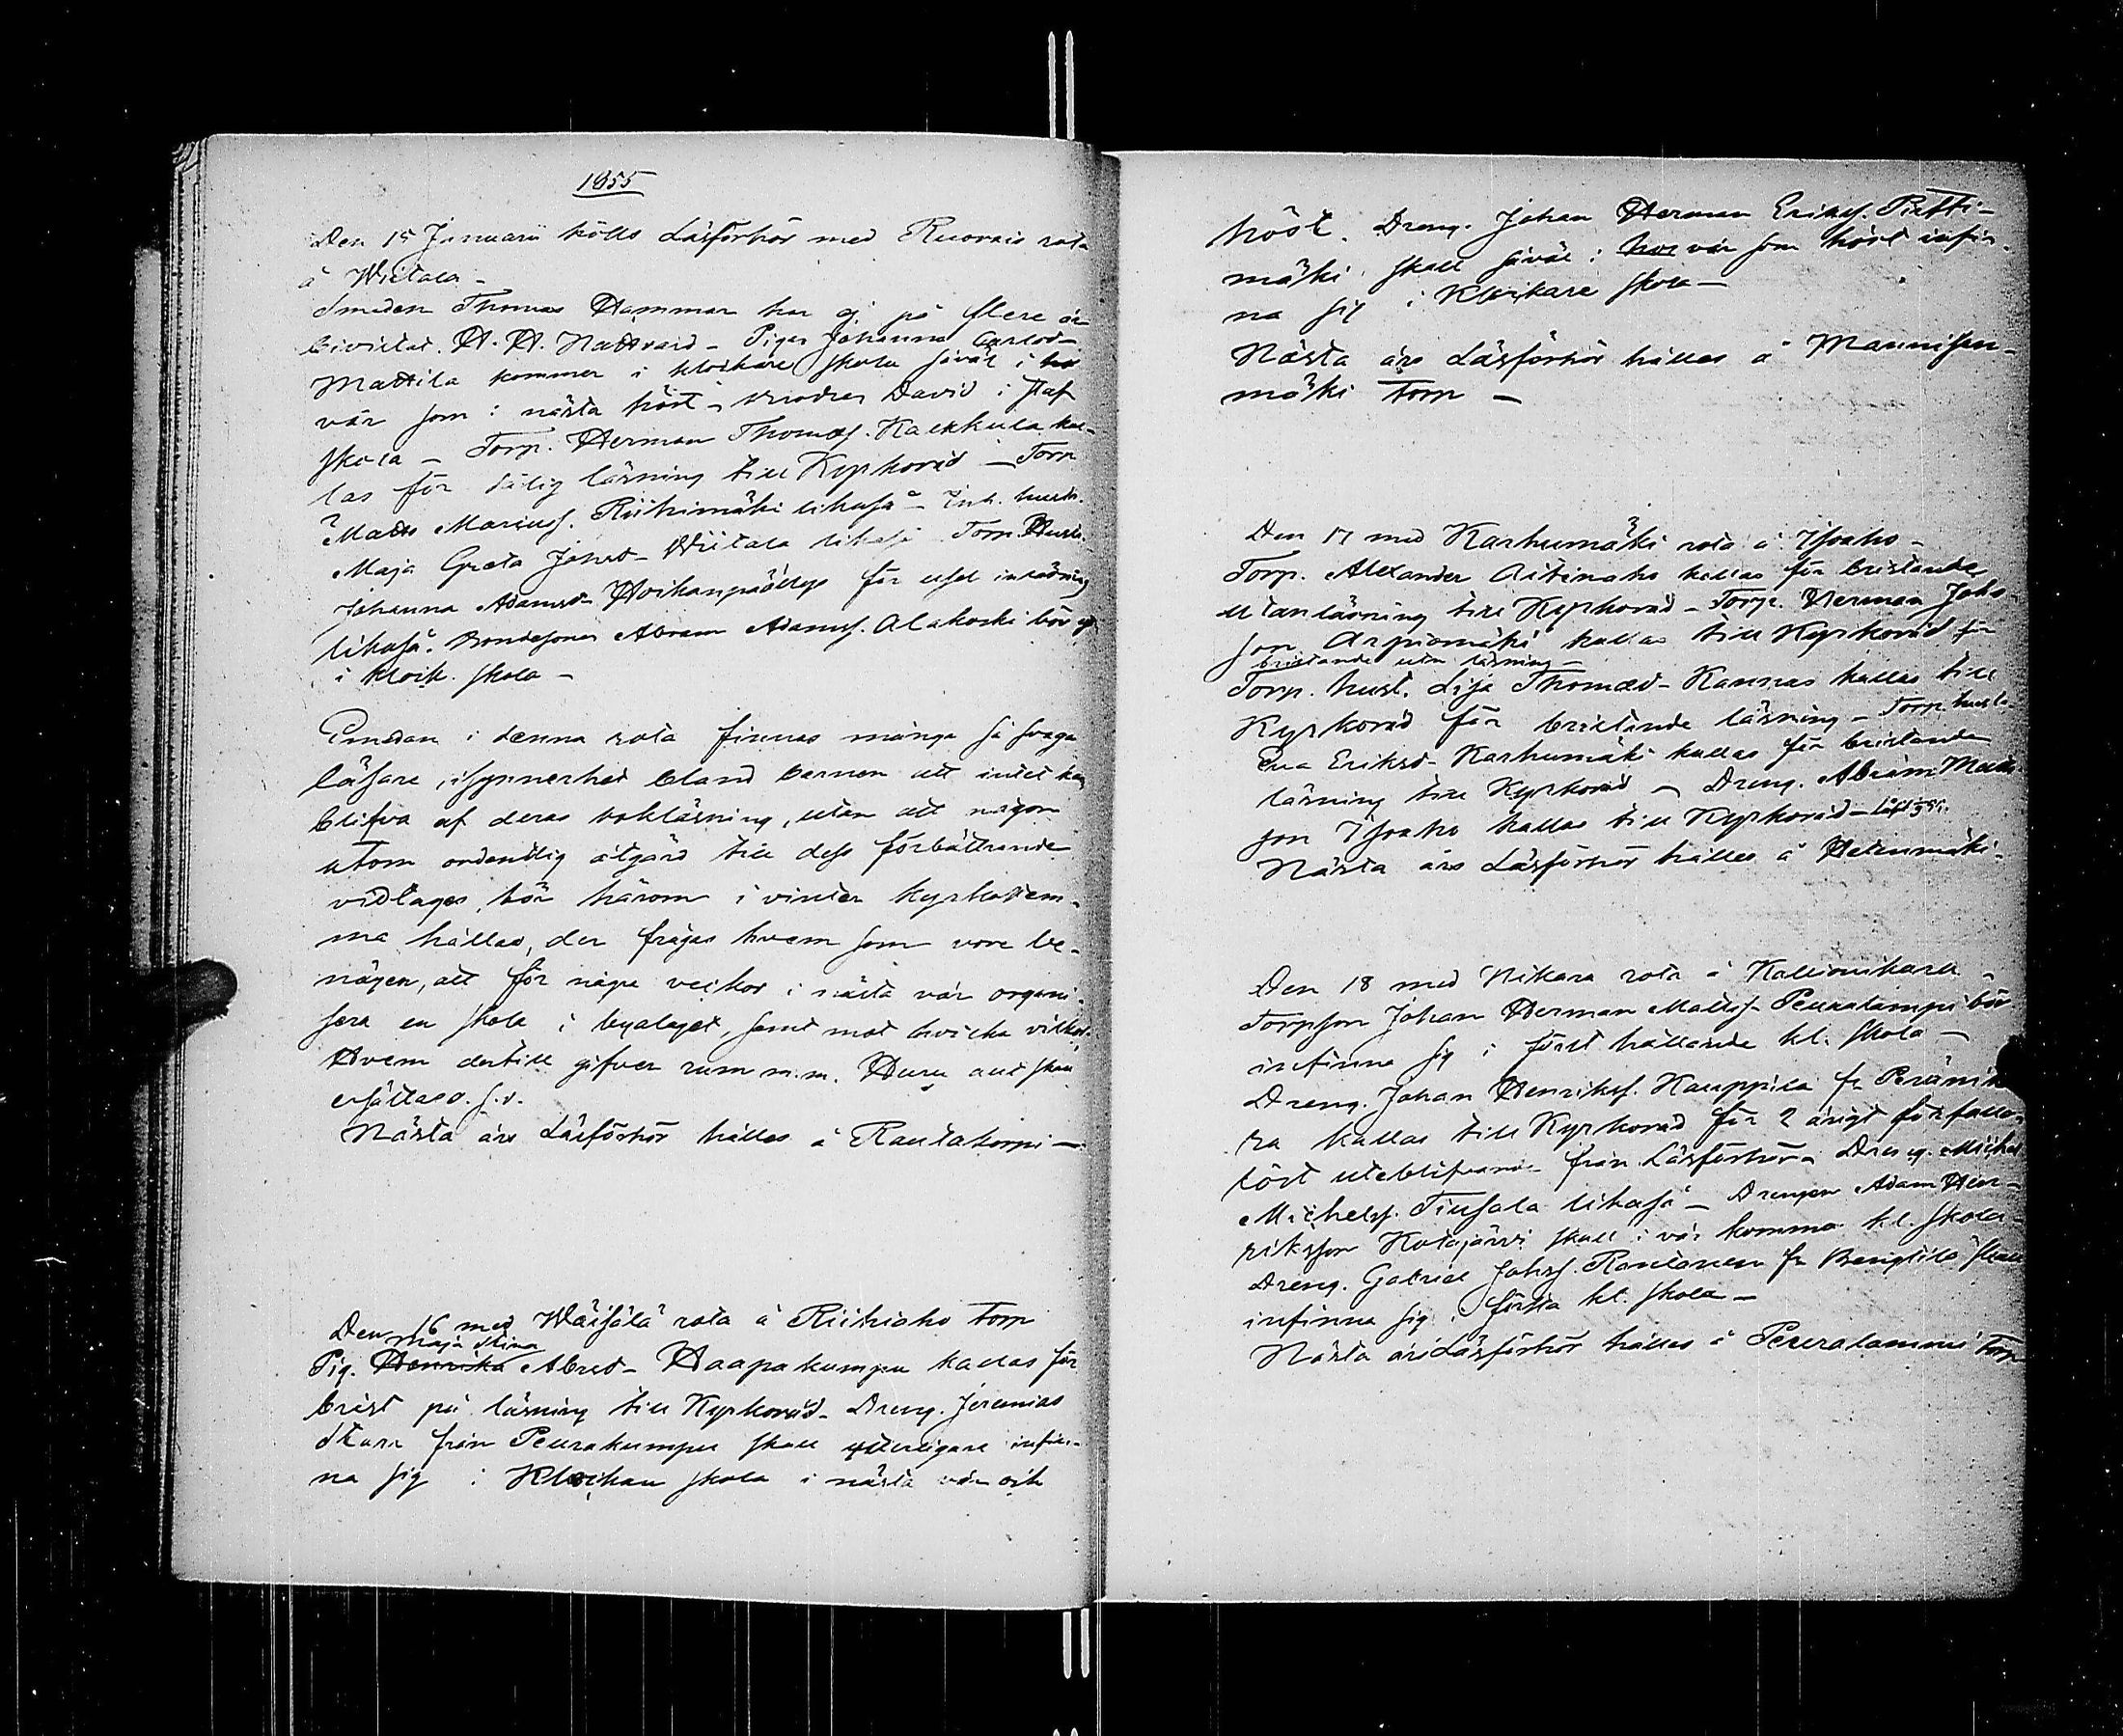 1855
Den 15 Januarii hölls Läsförhör med Ruovais rota
å Wiitala -
Smeden Thomas Hammar har ej på flere år
bivistat H. H. Nattvard - Pigan Johanna Carlsd-
Mattila kommer i klockare skola såväl i
vår som i nästa höst - David i Staf
skola - Torp. Herman Thomæs. Kaukkula kal-
las för dålig läsning till Kyrkoråd - Torp
Matts Mariuss. Riihimäki likaså - Inh. hustr.
Maja Greta Johsd- Wiitala likaså Torp. Hustr.
Johanna Adamsd- för usel inläsning
likaså. Bondesonen Abram Adamss. Alakoski bör
i klock. skola -
Emedan i denna rota finnas många så svaga
läsare, isynnerhet bland barnen att intet kan
blifva af deras bokläsning, utan att någon
utom ordentlig åtgärd till dess förbättrande
vidtages, bör härom i vinter Kyrkostäm-
ma hållas, der frågas hvem som vore be-
nägen, att för någre veckor i nästa vår organi-
sera en skola i byalaget, samt mot hvilka vilkor.
Hvem dertill gifver rum m.m. Huru allt skall
ersättas o.s.v.
Nästa års Läsförhör hålles å Rautakorpi -
Den 16 med Wäisälä rota å Riihiaho Torp
Maja Stina
Pig. Henrika Abrsd- Haapakumpu kallas för
brist på läsning till Kyrkoråd- Dreng. Jeremias
Skara från Peurakumpu skall ytterligare infin-
na sig i Klockare skola i nästa vår och
höst. Dreng. Johan Herman Erikss. Pietti-
mäki skall såväl i hos vår som höst infin-
na sig i Klockare skola -
Nästa års Läsförhör hålles å Mannisen-
mäki Torp -
Den 17 med Karhumäki rota å Isoaho -
Torp. Alexander Aitinaho kallas för bristande
utanläsning till Kyrkoråd - Torp. Herman Johs
son Arpiomäki kallas till Kyrkoråd för
bristande utn läsning -
Torp. hust. Lisa Thomæd - Kannas kallas till
Kyrkoråd för bristande läsning - Torp. hust.
Eva Eriksd- Karhumäki kallas för bristande
läsning till Kyrkoråd - Dreng. Abram Matts
son Isoaho kallas till Kyrkoråd -
Nästa års Läsförhör hålles å Hetenmäki -
Den 18 med Nikara rota å Kallionikara -
Torpson Johan Herman Mattss. Peuralampi bör
infinna sig i först hållande kl. skola -
Dreng. Johan Henrikss. Kauppila fr Peränika
ra kallas till Kyrkoråd för 2 årigt förfallo-
löst uteblifvande från Läsförhör - Dreng. Michel
Michelss. Tiusala likaså - Drengen Adam Hen-
riksson Kotajärvi skall i vår komma kl. skola -
Dreng. Gabriel Johss. Rantanen fr Bengtila skall
infinna sig i första kl. skola -
Nästa års Läsförhör hålles å Peuralammi Torp